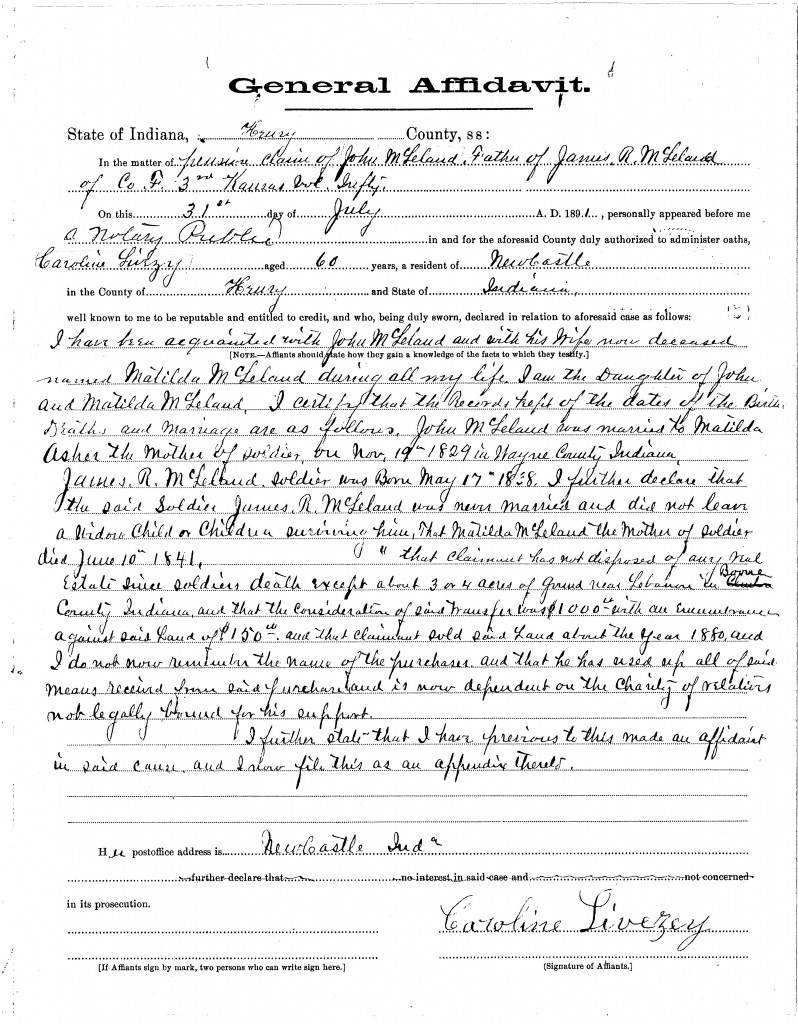 General Affidavit.
State of Indiana, Henry County, ss:
In the matter of pension claim of John McLeland, Father of James. R. McLeland
of Co. F. 3rd Kansas Vol. Infty.
On this 31st day of July A. D. 1891, personally appeared before me
a Notary Public in and for the aforesaid County duly authorized to administer oaths,
Caroline Livzy aged 60 years, a resident of NewCastle
in the County of Henry and State of Indiana,
well known to me to be reputable and entitled to credit, and who, being duly sworn, declared in relation to aforesaid case as follows:
I have been acquainted with John McLeland and with his Wife now deceased
[NOTE.—Affiants should state how they gain a knowledge of the facts to which they testify.]
named Matilda McLeland during all my life. I am the Daughter of John
and Matilda McLeland, I certify that the Records kept of the dates of the Birth
Deaths and Marriage are as follows, John McLeland was married to Matilda
Asher the Mother of soldier, on Nov, 19th 1829 in Wayne County Indiana,
James. R. McLeland, soldier was Born May 17th 1838. I further declare that
the said Soldier James. R. McLeland was never married and did not leave
a Widow Child or Children surviving him, That Matilda McLeland the Mother of soldier
died June 10th 1841, " that claimant has not disposed of any real
Estate since soldiers death except about 3 or 4 acres of Ground near Lebanon in Boone
County Indiana, and that the consideration of said transfer was $1000 with an Encumbrance
against said Land of $150 and that claimant sold said Land about the year 1880, and
I do not now remember the name of the purchaser and that he has used up all of said
means received from said purchase and is now dependent on the Charity of relatives
not legally bound for his support.
I further state that I have previous to this made an affidavit
in said cause, and I now file this as an appendix thereto.
Her postoffice address is NewCastle Inda
further declare that no interest in said case and not concerned
in its prosecution.
Caroline Livezey
[If Affiants sign by mark, two persons who can write sign here.] (Signature of Affiants.)